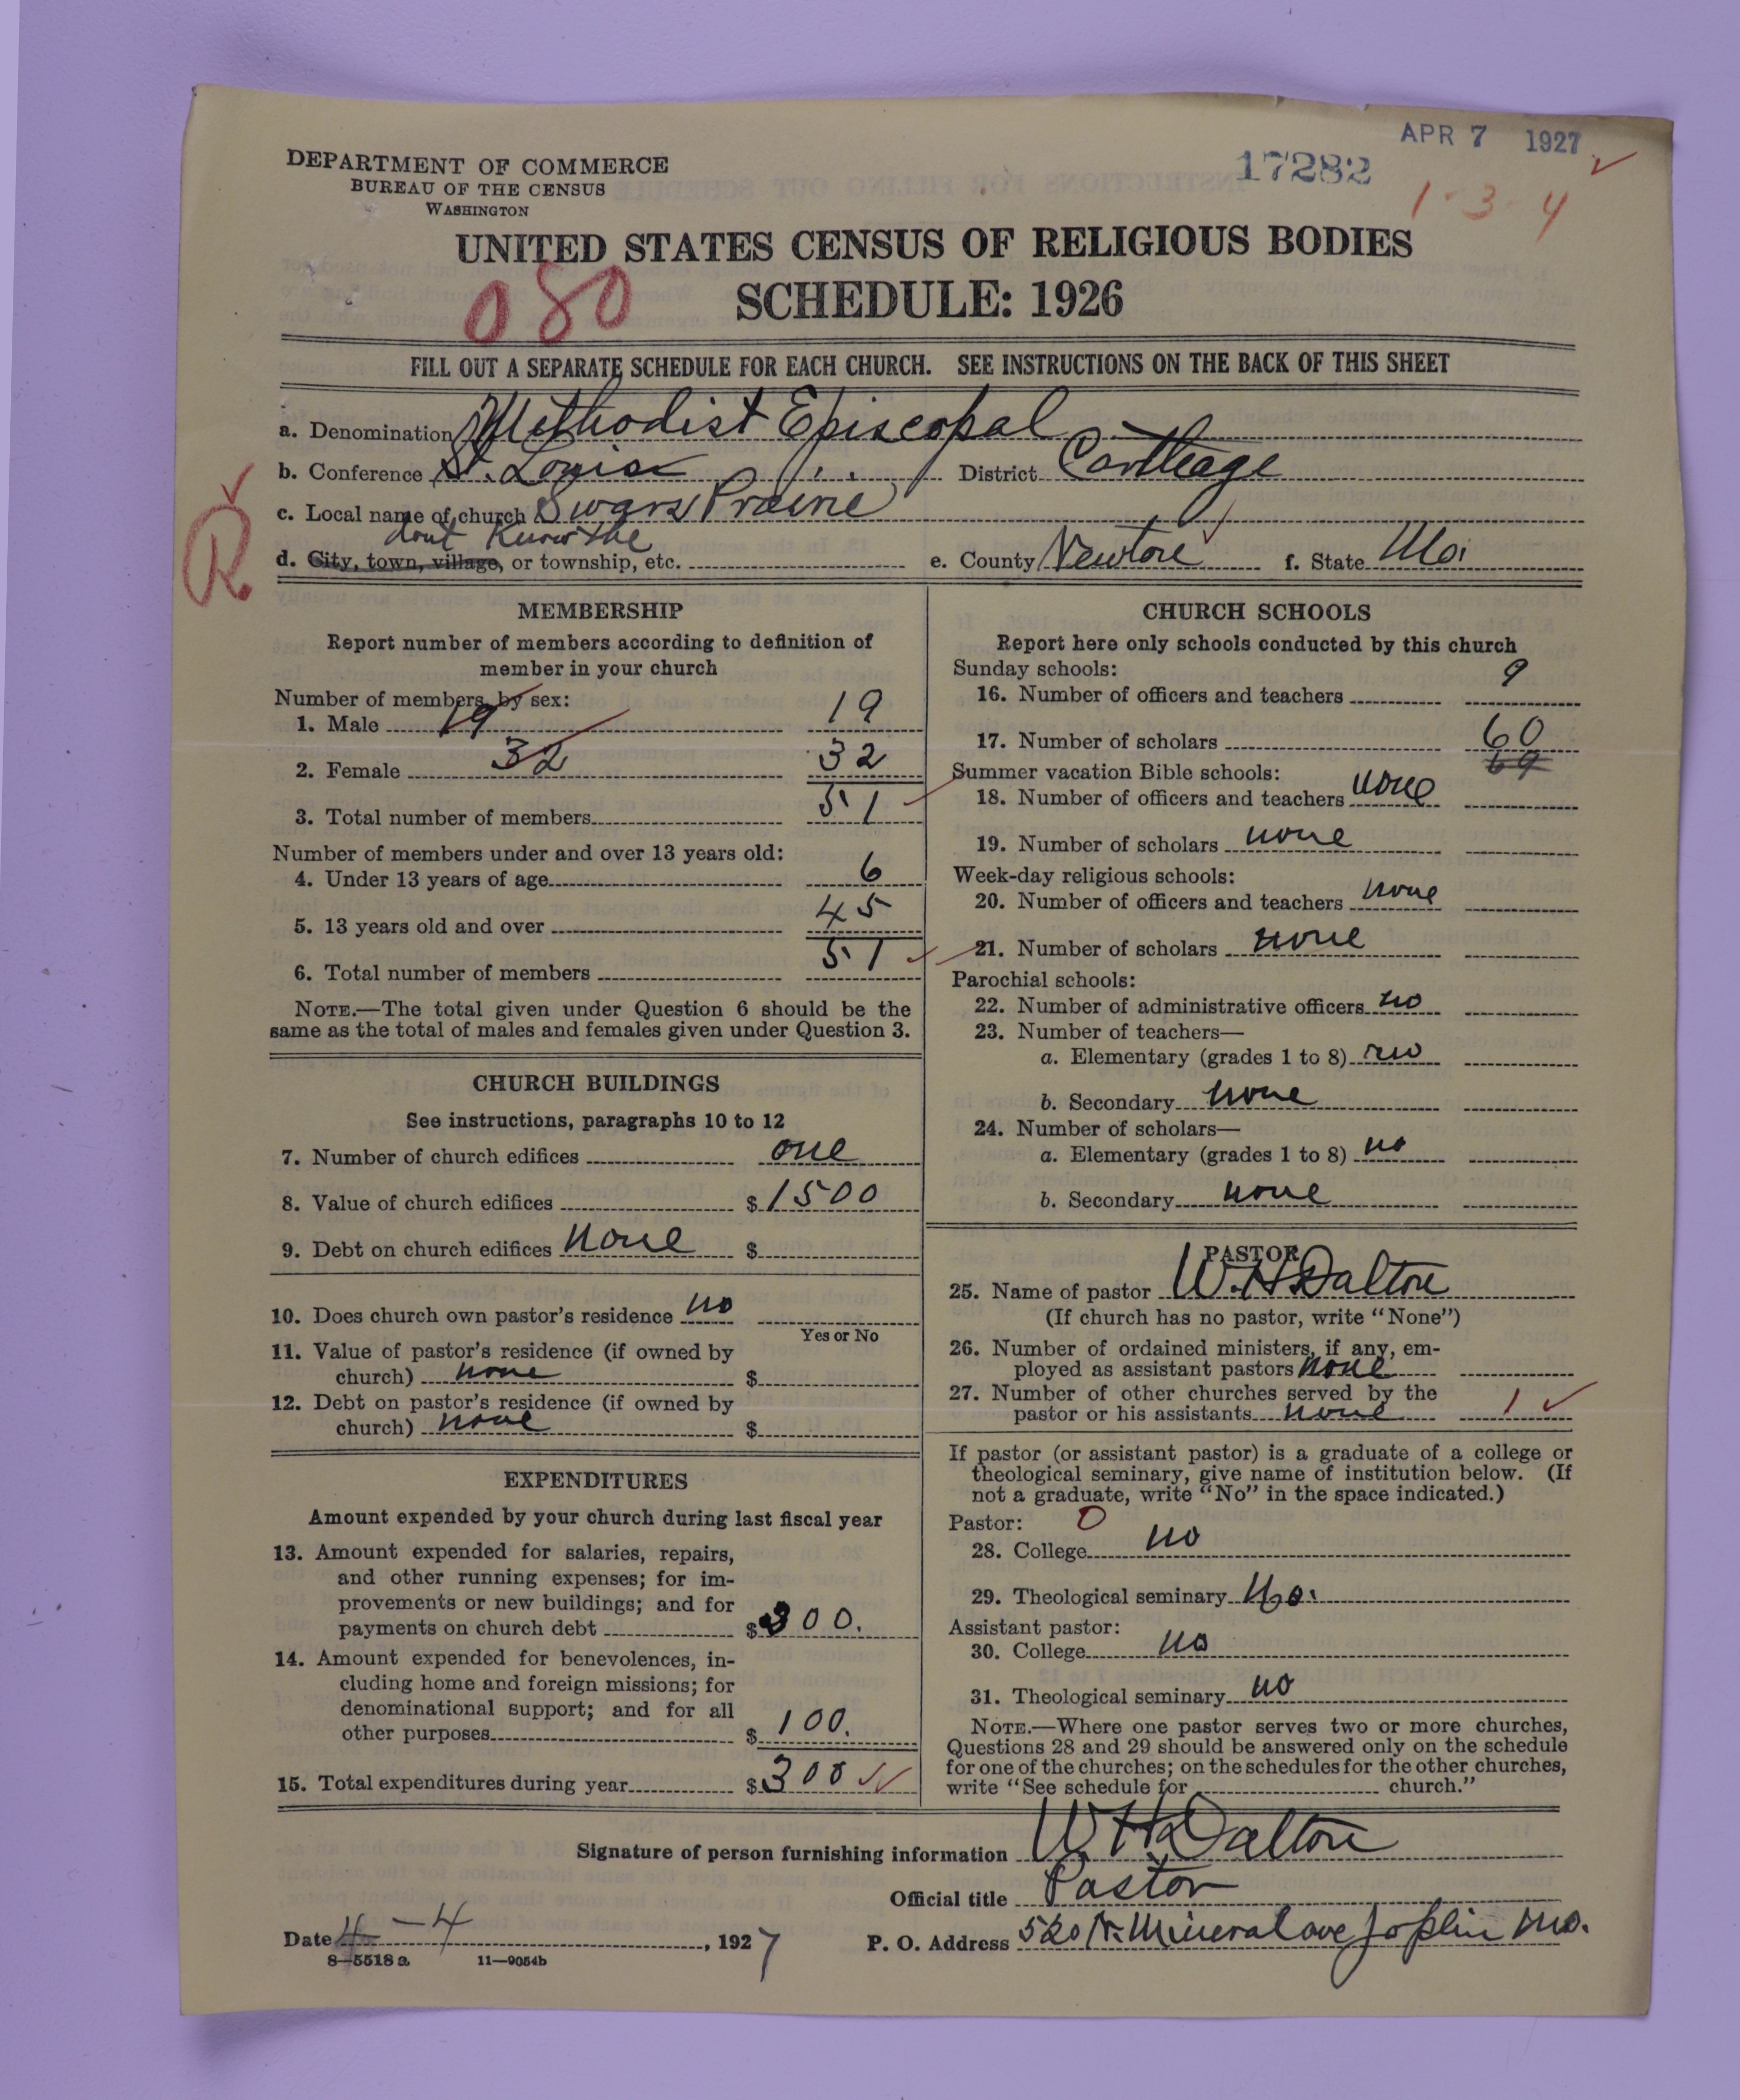 APR 7 1927
DEPARTMENT OF COMMERCE
BUREAU OF THE CENSUS
WASHINGTON
17282
1-3-4
UNITED STATES CENSUS OF RELIGIOUS BODIES
080
SCHEDULE: 1926
FILL OUT A SEPARATE SCHEDULE FOR EACH CHURCH. SEE INSTRUCTIONS ON THE BACK OF THIS SHEET
a. Denomination Methodist Episcopal
b. Conference St. Louis District Carthage
c. Local name of church Swars Prairie
dont Know the
d. City, town, village, or township, etc. e. County Newton f. State Mo.
R
MEMBERSHIP
Report number of members according to definition of
member in your church
Number of members by sex:
1. Male 19 19
2. Female 32 32
3. Total number of members 51
Number of members under and over 13 years old:
4. Under 13 years of age 6
5. 13 years old and over 45
6. Total number of members 51
NOTE.—The total given under Question 6 should be the
same as the total of males and females given under Question 3.
CHURCH BUILDINGS
See instructions, paragraphs 10 to 12
7. Number of church edifices one
8. Value of church edifices $ 1500
9. Debt on church edifices None $
10. Does church own pastor's residence no
Yes or No
11. Value of pastor's residence (if owned by
church) none $
12. Debt on pastor's residence (if owned by
church) none $
EXPENDITURES
Amount expended by your church during last fiscal year
13. Amount expended for salaries, repairs,
and other running expenses; for im-
provements or new buildings; and for
payments on church debt $ 00.
14. Amount expended for benevolences, in-
cluding home and foreign missions; for
denominational support; and for all
other purposes $ 100.
15. Total expenditures during year $ 300
CHURCH SCHOOLS
Report here only schools conducted by this church
Sunday schools:
16. Number of officers and teachers 9
17. Number of scholars 60
69
Summer vacation Bible schools:
18. Number of officers and teachers none
19. Number of scholars none
Week-day religious schools:
20. Number of officers and teachers none
21. Number of scholars none
Parochial schools:
22. Number of administrative officers no
23. Number of teachers—
a. Elementary (grades 1 to 8) no
b. Secondary none
24. Number of scholars—
a. Elementary (grades 1 to 8) no
b. Secondary none
PASTOR
25. Name of pastor W. H. Dalton
(If church has no pastor, write "None")
26. Number of ordained ministers, if any, em-
ployed as assistant pastors none
27. Number of other churches served by the
pastor or his assistants none 1
If pastor (or assistant pastor) is a graduate of a college or
theological seminary, give name of institution below. (If
not a graduate, write "No" in the space indicated.)
Pastor: 0
28. College no
29. Theological seminary No.
Assistant pastor:
30. College no
31. Theological seminary no
NOTE.—Where one pastor serves two or more churches,
Questions 28 and 29 should be answered only on the schedule
for one of the churches; on the schedules for the other churches,
write "See schedule for church."
Signature of person furnishing information W. H. Dalton
Official title Pastor
Date 4-4, 1927 P. O. Address 520 N. Mineral ave Joplin Mo.
8—5518 a 11—9054b